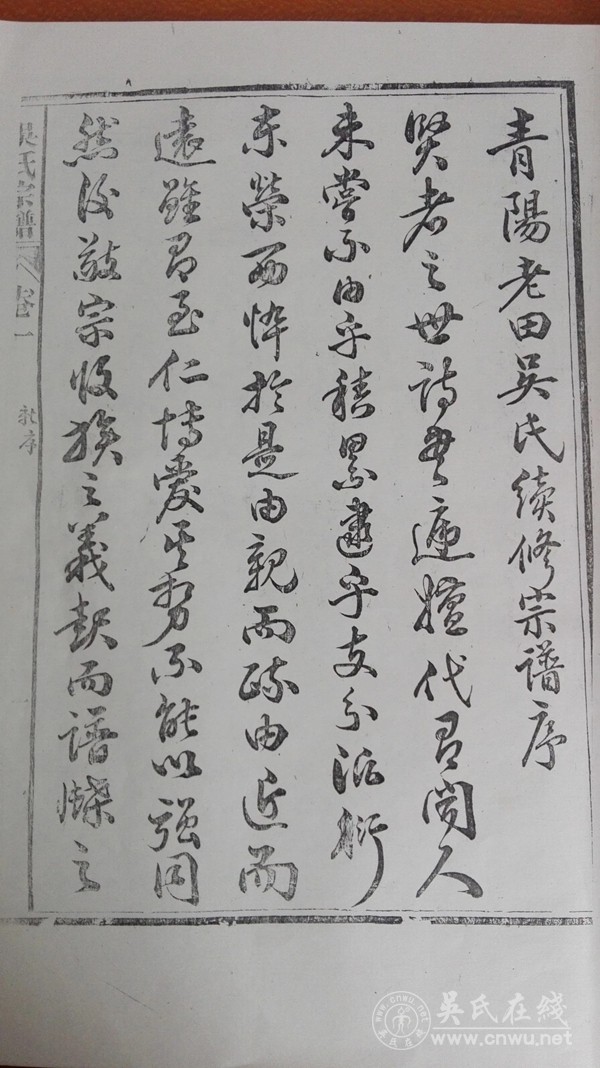 青陽老田吳氏續修宗譜序
賢者之世詩書遞嬗代有聞人
未嘗不由乎積累逮乎支分派衍
東榮西悴於是由親而疏由近而
遠雖有至仁博愛其勢不能以強同
然後敬宗收族之義起而譜牒之
吳氏宗譜
卷一
序
吳氏在綫
www.cnwu.net